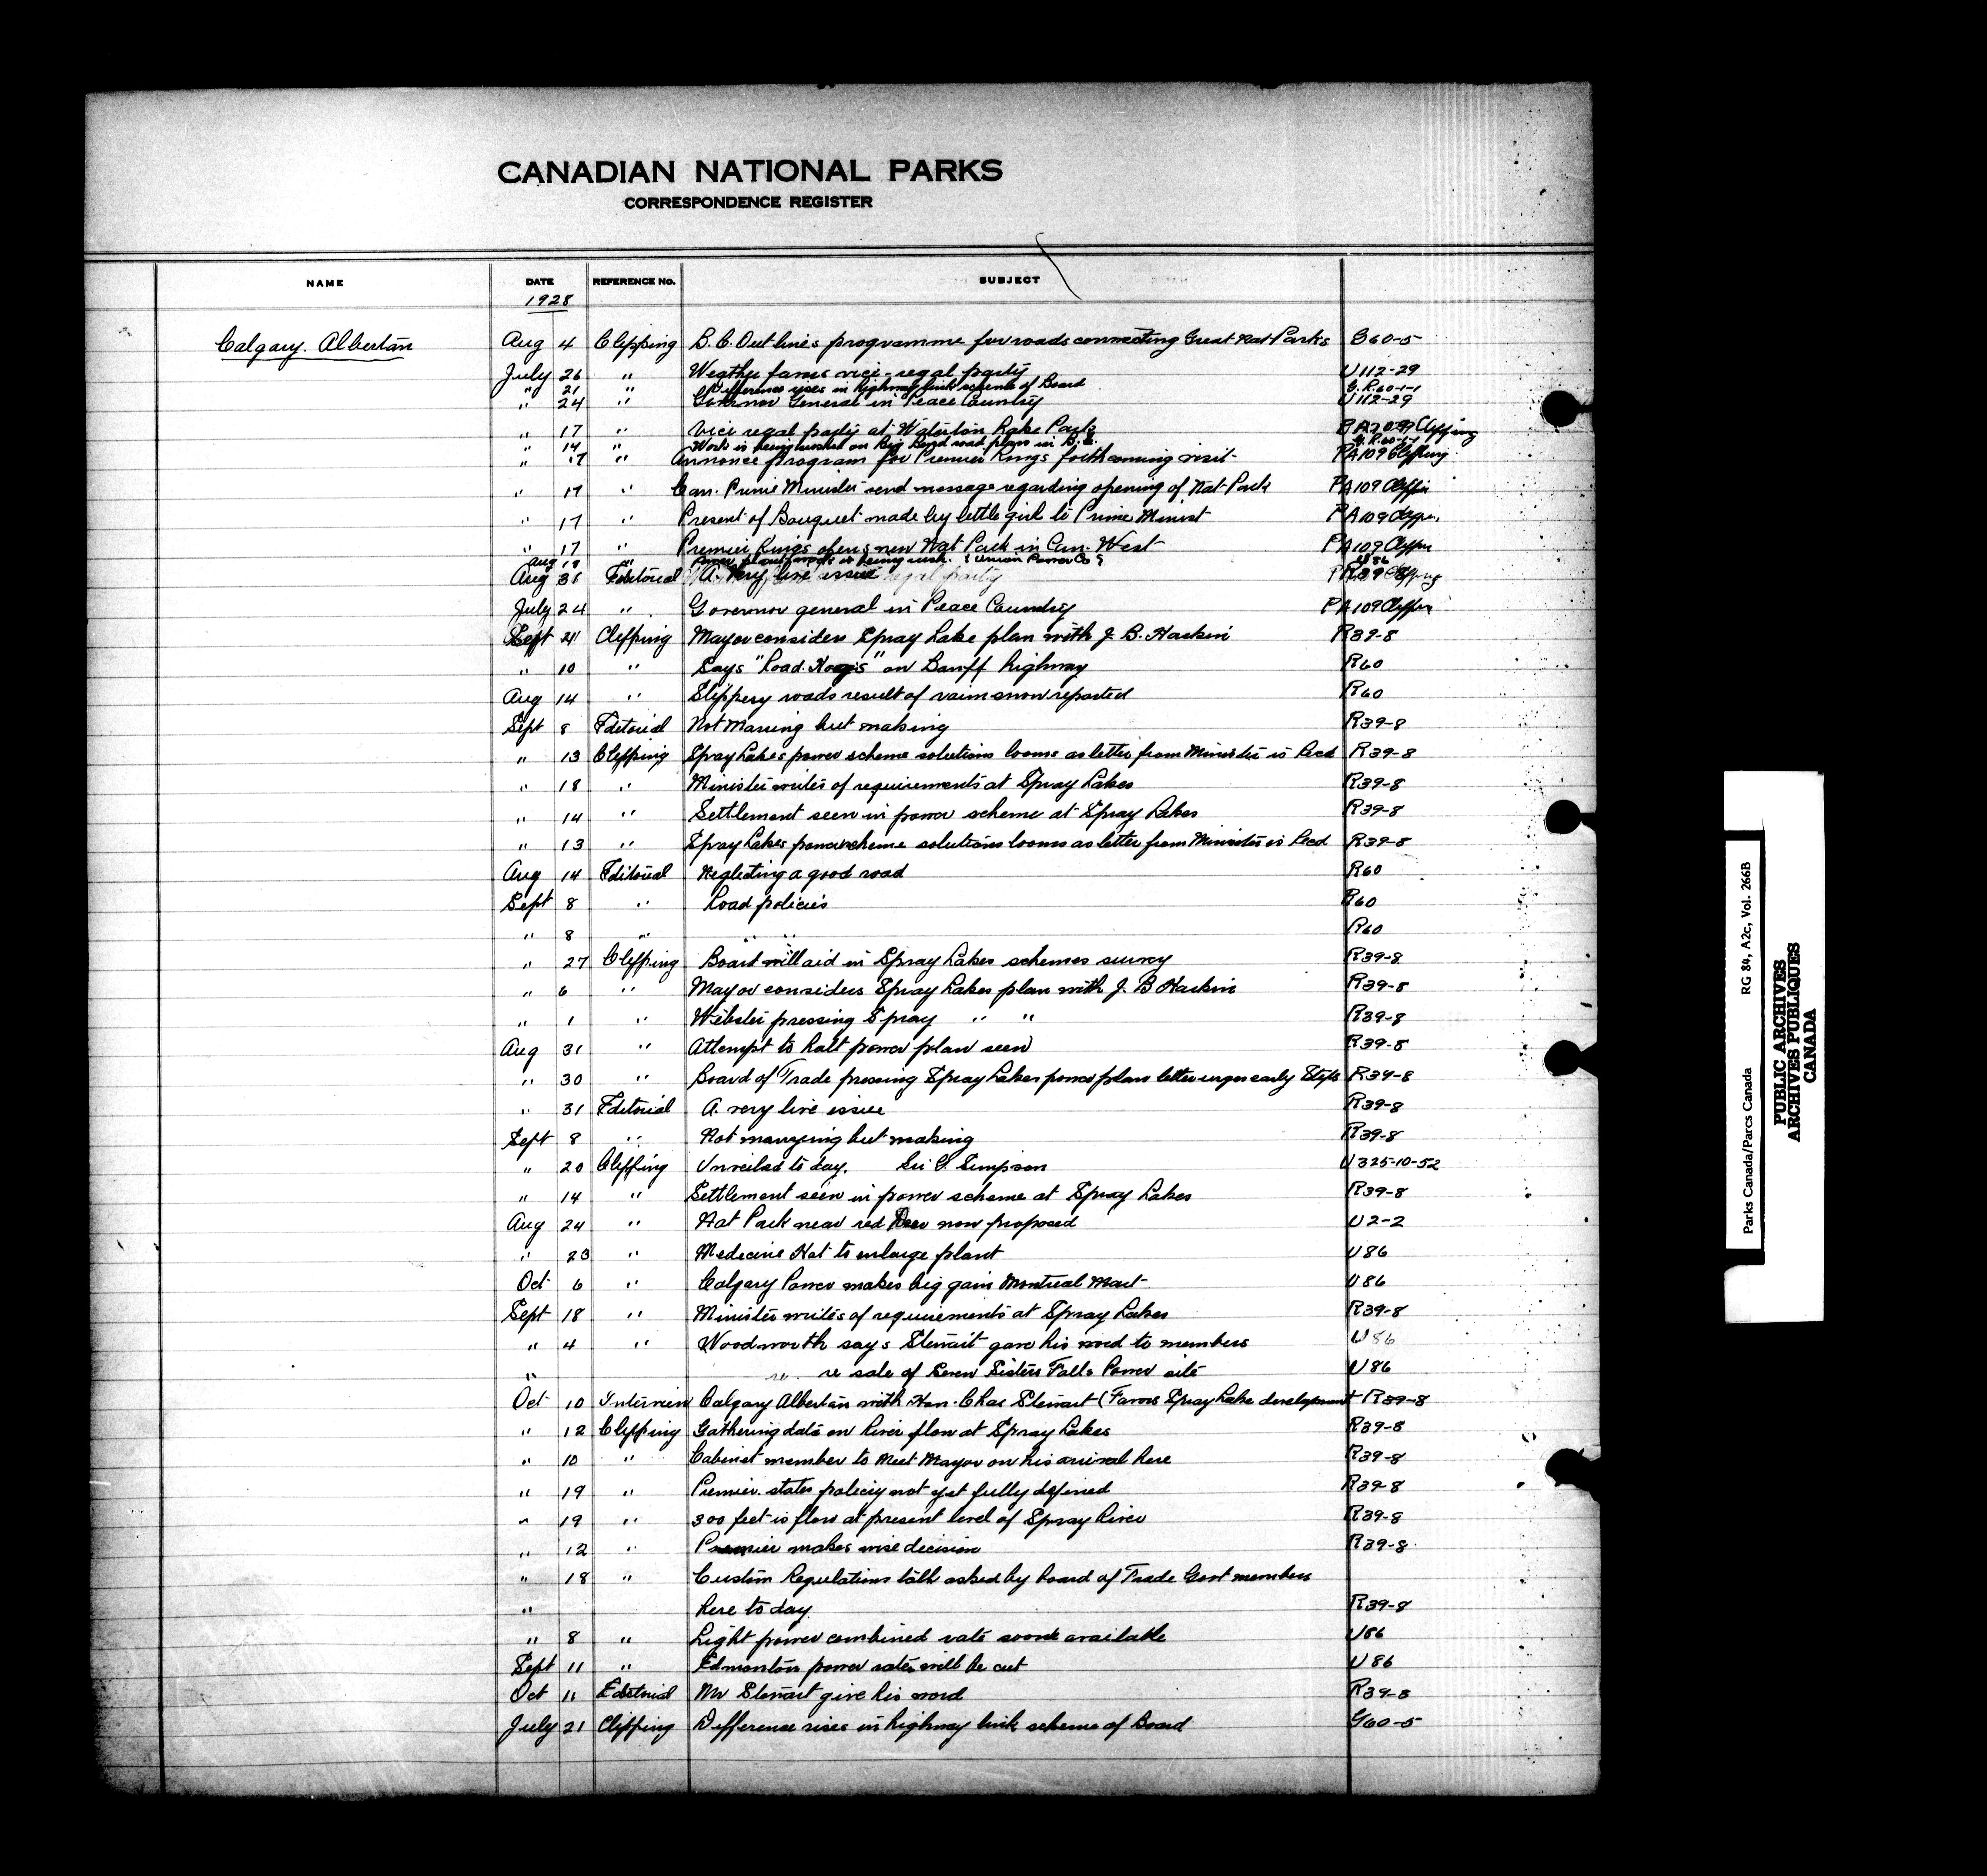 CANADIAN NATIONAL PARKS
CORRESPONDENCE REGISTER
NAME DATE REFERENCE No. SUBJECT
1928
Calgary. Albertan Aug 4 Clipping B.C. Outlines programme for roads connecting Great Nat Parks G60-5
July 26 " Weather favors vice-regal party U112-29
" 21 " Difference rises in highway link scheme of Board G.R.60-1-1
" 24 " Governor General in Peace Country U112-29
" 17 " Vice regal party at Waterton Lake Park Clipping
" 14 " Work is being rushed on Big Bend road plans in B.C. G.R.60-1-1
" 17 " Annonce program for Premier Kings forthcoming visit PA109 Clipping
" 17 " Can. Prime Minister send message regarding opening of Nat Park PA109 Clippin
" 17 " Present of Bouquet made by little girl to Prime Minist PA109
" 17 " Premier Kings opens new Nat Park in Can. West PA109
Aug 18 " Power plant work is being rush. (Union Power Co) U86
Aug 31 Editorial A. Very live issue R39-8
July 24 " Governor general in Peace Country PA109 Clippin
Sept 21 Clipping Mayor considers Spray Lake plan with J. B. Harkin R39-8
" 10 " Says "Road. Hogs" on Banff highway R60
Aug 14 " Slippery roads result of rain snow reported R60
Sept 8 Editorial Not Marring but making R39-8
" 13 Clipping Spray Lakes power scheme solutions looms as letter from Minister is Recd R39-8
" 18 " Minister writes of requirements at Spray Lakes R39-8
" 14 " Settlement seen in power scheme at Spray Lakes R39-8
" 13 " Spray Lakes power scheme solutions looms as letter from Minister is Recd R39-8
Aug 14 Editorial Neglecting a good road R60
Sept 8 " Road policies R60
" 8 " " " R60
" 27 Clipping Board will aid in Spray Lakes schemes survey R39-8
" 6 " Mayor considers Spray Lakes plan with J. B Harkin R39-8
" 1 " Webster pressing Spray " " R39-8
Aug 31 " Attempt to halt power plan seen R39-8
" 30 " Board of Trade pressing Spray Lakes power plans letter urges early Steps R39-8
" 31 Editorial A. very live issue R39-8
Sept 8 " Not marrying but making R39-8
" 20 Clipping Unveiled to day. Sir G. Simpson U325-10-52
" 14 " Settlement seen in power scheme at Spray Lakes R39-8
Aug 24 " Nat Park near red Deer now proposed U2-2
" 23 " Medecine Hat to enlarge plant U86
Oct 6 " Calgary Power makes big gain Montreal Mart U86
Sept 18 " Minister writes of requirements at Spray Lakes R39-8
" 4 " Woodworth says Stewart gave his word to members U86
" re sale of Seven Sisters Falls Power site U86
Oct 10 Interview Calgary Albertan with Hon. Chas Stewart (Favors Spray Lake development R39-8
" 12 Clipping Gathering data on River flow at Spray Lakes R39-8
" 10 " Cabinet member to Meet Mayor on his arrival here R39-8
" 19 " Premier. states policiy not yet fully defined R39-8
" 19 " 300 feet is flow at present level of Spray River R39-8
" 12 " Premier makes wise decision R39-8
" 18 " Custom Regulations talk asked by Board of Trade Govt members
" here to day. R39-8
" 8 " Light power combined rate soon available U86
Sept 11 " Edmonton power rates will be cut U86
Oct 11 Editorial Mr Stewart give his word R39-8
July 21 Clipping Difference rises in highway link scheme of Board G60-5
Parks Canada/Parcs Canada RG 84, A2c, Vol. 266B
PUBLIC ARCHIVES
ARCHIVES PUBLIQUES
CANADA